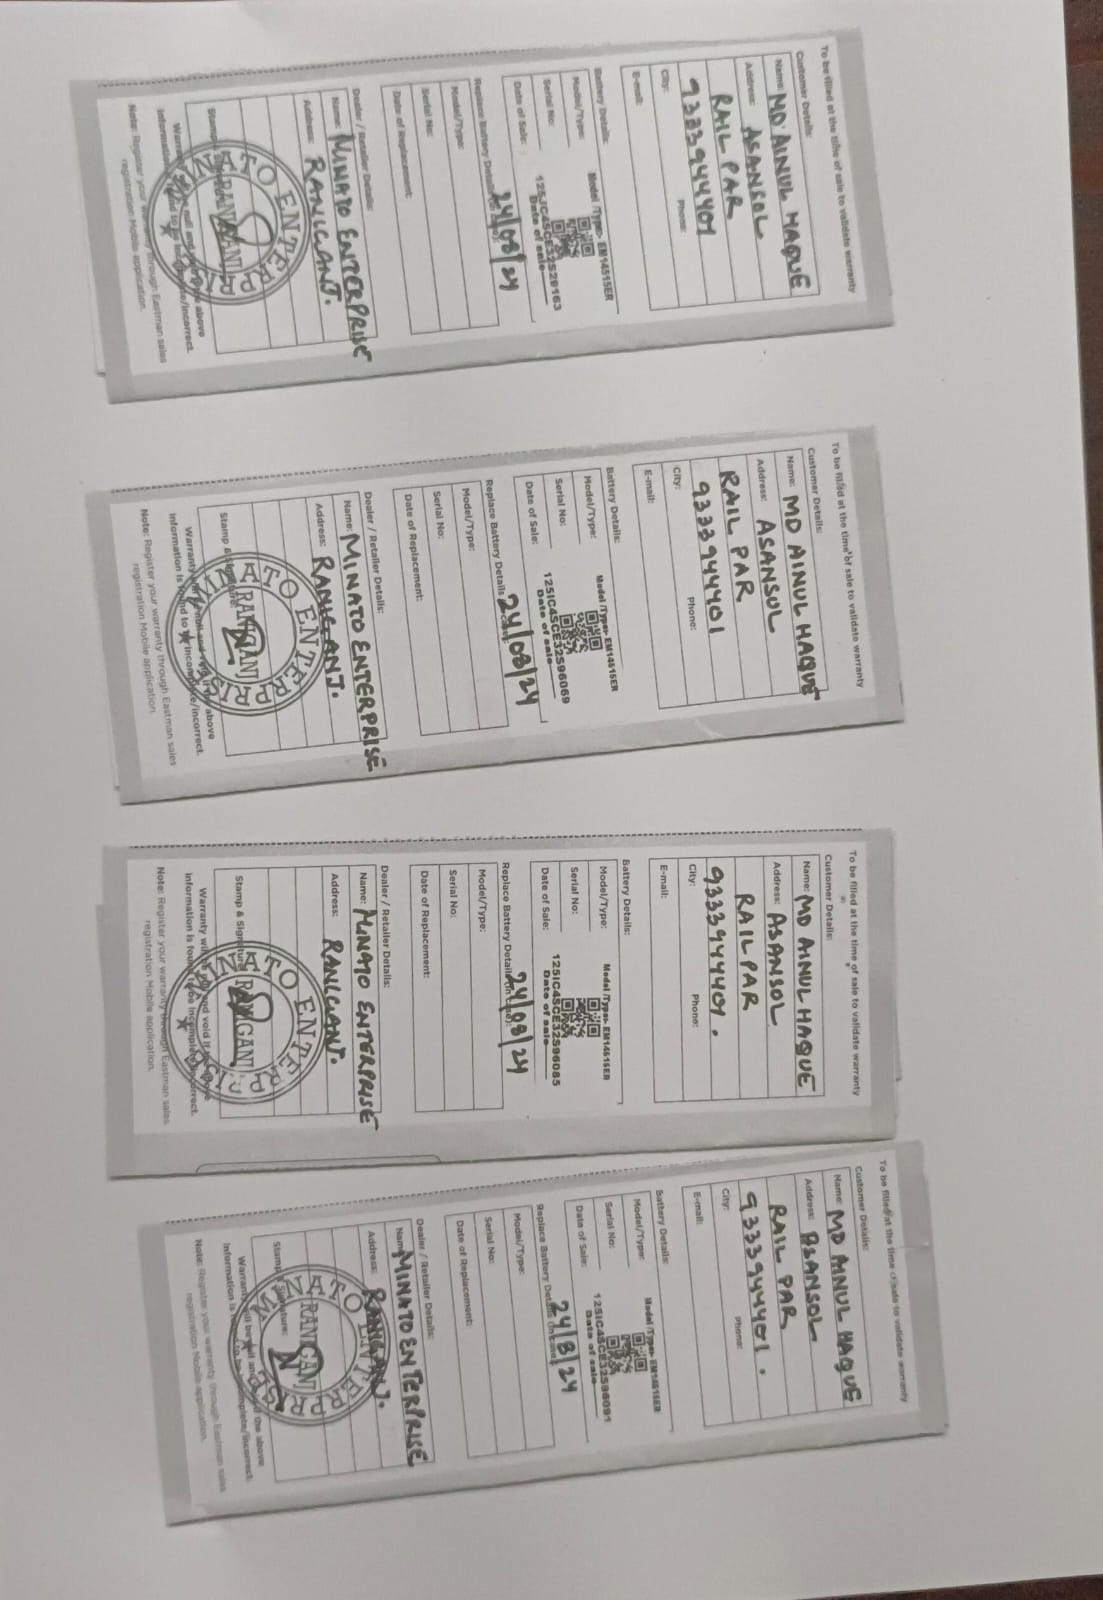 To be filled at the time of sale to validate warranty
Customer Details:
Name: MD AINUL HAQUE
Address: ASANSOL
RAIL PAR
9333944401
City: Phone:
E-mail:
Battery Details:
Model/Type: Model /Type:- EM14515ER
Serial No: 125JC4SCE32S29163
Date of Sale: Date of sale
24/08/24
Replace Battery Details (in case):
Model/Type:
Serial No:
Date of Replacement:
Dealer / Retailer Details:
Name: MINATO ENTERPRISE
Address: RANIGANJ.
MINATO ENTERPRISE
RANIGANJ
Stamp &
Warranty null and void above
information is found to be incomplete/incorrect.
Note: Register your warranty through Eastman sales
registration Mobile application.
To be filled at the time of sale to validate warranty
Customer Details:
Name: MD AINUL HAQUE
Address: ASANSOL
RAIL PAR
9333944401
City: Phone:
E-mail:
Battery Details:
Model/Type: Model /Type:- EM14515ER
Serial No: 125IC4SCE32S96069
Date of Sale: Date of sale
24/08/24
Replace Battery Details (in case):
Model/Type:
Serial No:
Date of Replacement:
Dealer / Retailer Details:
Name: MINATO ENTERPRISE
Address: RANIGANJ.
MINATO ENTERPRISE
RANIGANJ
Stamp & Signature:
Warranty will be null and void if the above
information is found to be incomplete/incorrect.
Note: Register your warranty through Eastman sales
registration Mobile application.
To be filled at the time of sale to validate warranty
Customer Details:
Name: MD AINUL HAQUE
Address: ASANSOL
RAIL PAR
9333944401.
City: Phone:
E-mail:
Battery Details:
Model/Type: Model /Type:- EM14515ER
Serial No: 125IC4SCE32S96085
Date of Sale: Date of sale
24/08/24
Replace Battery Details (in case):
Model/Type:
Serial No:
Date of Replacement:
Dealer / Retailer Details:
Name: MINATO ENTERPRISE
Address: RANIGANJ.
MINATO ENTERPRISE
RANIGANJ
Stamp & Signature
Warranty will be and void if the above
information is found to be incomplete/incorrect.
Note: Register your warranty through Eastman sales
registration Mobile application.
To be filled at the time of sale to validate warranty
Customer Details:
Name: MD AINUL HAQUE
Address: ASANSOL
RAIL PAR
9333944401.
City: Phone:
E-mail:
Battery Details:
Model/Type: Model /Type:- EM14515ER
Serial No: 125IC4SCE32S96091
Date of Sale: Date of sale
24/8/24
Replace Battery Details (in case):
Model/Type:
Serial No:
Date of Replacement:
Dealer / Retailer Details:
Name: MINATO ENTERPRISE
Address: RANIGANJ.
MINATO ENTERPRISE
RANIGANJ
Stamp & Signature:
Warranty will be null and void if the above
information is found to be incomplete/incorrect.
Note: Register your warranty through Eastman sales
registration Mobile application.